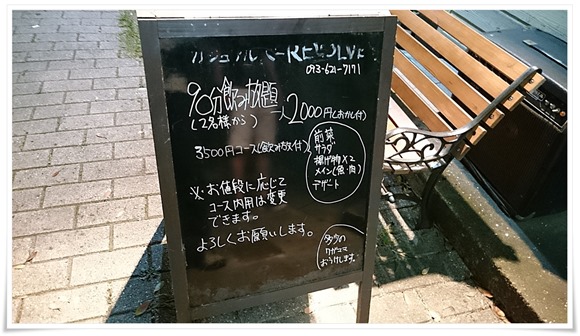 カジュアルバーREVOLVE
093-621-7171
90分飲み放題 一人2000円(おかし付)
(2名様から)
3500円コース(飲み放付)
前菜
サラダ
揚げ物×2
メイン(魚・肉)
デザート
※お値段に応じて
コース内用は変更
できます。
よろしくお願いします。
おうけします。